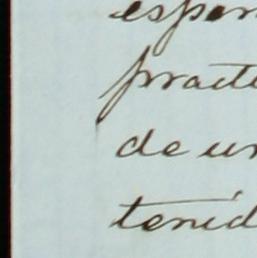 espera
practi
de un
tenid